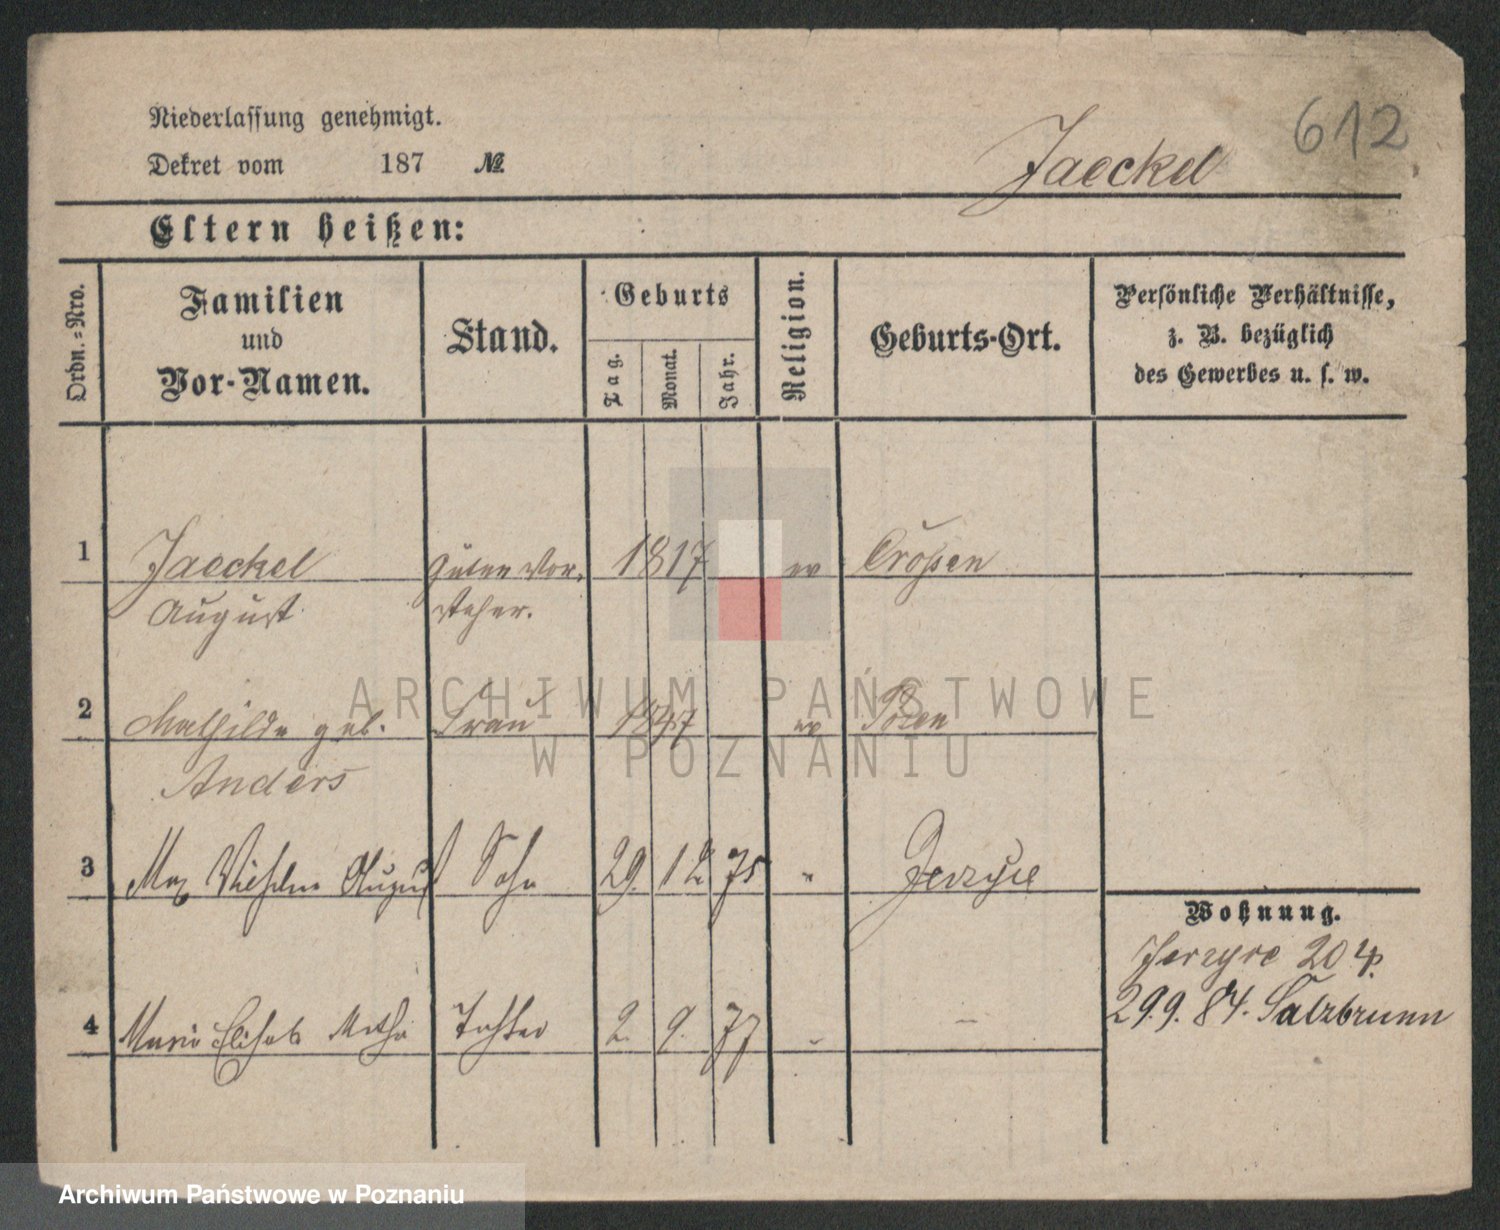 612
Niederlassung genehmigt.
Dekret vom 187 №
Jaeckel
Eltern heißen:
Ordn.=Nro.
Familien
und
Vor-Namen.
Stand.
Geburts
Tag.
Monat.
Jahr.
Religion.
Geburts-Ort.
Persönliche Verhältnisse,
z. B. bezüglich
des Gewerbes u. s. w.
1 Jaeckel Güter Vor. 1817 ev Croßen
August steher.
2 Mathilde geb. Frau 1847 ev Posen
Anders
3 Max Wilhelm August Sohn 29. 12. 75 " Jerzyce
4 Marie Elisab Martha Tochter 2. 9. 77 " —
Wohnung.
Jerzyce 204.
29.9.84. Salzbrunn
ARCHIWUM PAŃSTWOWE
W POZNANIU
Archiwum Państwowe w Poznaniu